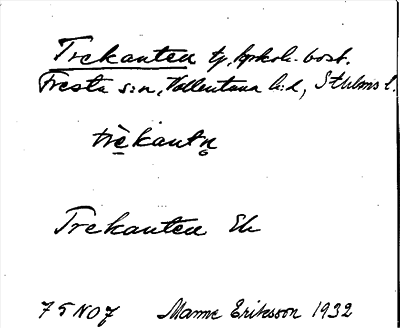 Trekanten tj, kyrkoh. bost.
Fresta s:n, Vallentuna h:d, Sthlms l.
trèkantn̥
Trekanten Ek
75 NO7 Manne Eriksson 1932